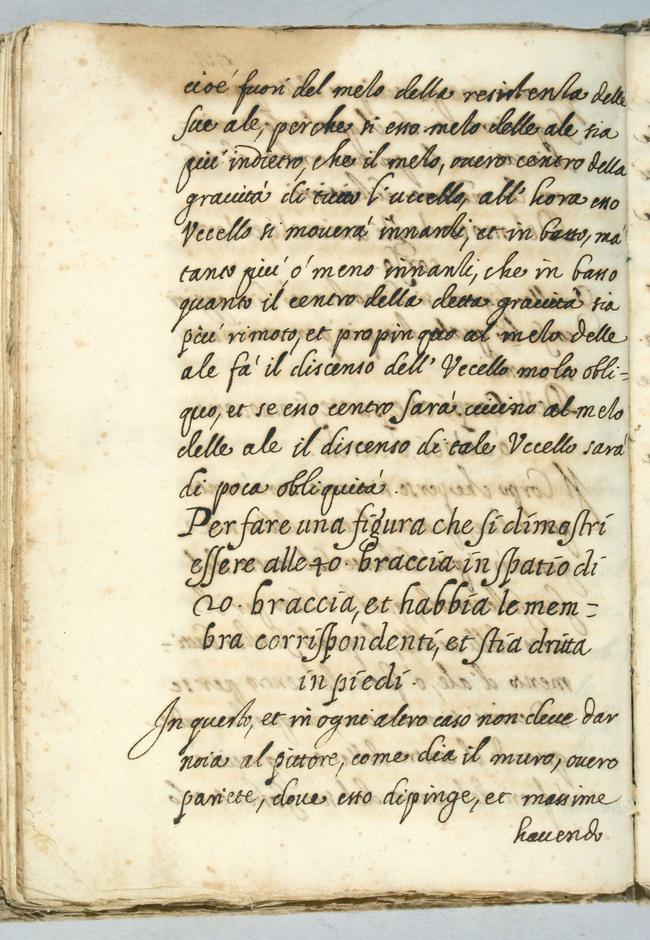 cioé fuori del mezo della resistenza delle
sue ale, perche si esso mezo delle ale sia
piu' indietro, che il mezo, overo centro della
gravitá di tutto l'uccello, all' hora esso
Vccello si moverá innanzi, et in basso, má
tanto piú ó meno innanzi, che in basso
quanto il centro della detta gravitá sia
piú rimoto, et propinquo al mezo delle
ale fá il discenso dell' Vccello molto obli=
quo, et se esso centro sará vicino al mezo
delle ale il discenso di tale Vccello sará
di poca obliquitá.
Per fare una figura che si dimostri
essere alle 40. braccia in spatio di
20. braccia, et habbia le mem=
bra corrispondenti, et stia dritta
in piedi.
In questo, et in ogni altro caso non deve dar
noia al pittore, come dia il muro, overo
pariete, dove esso dipinge, et massime
havendo